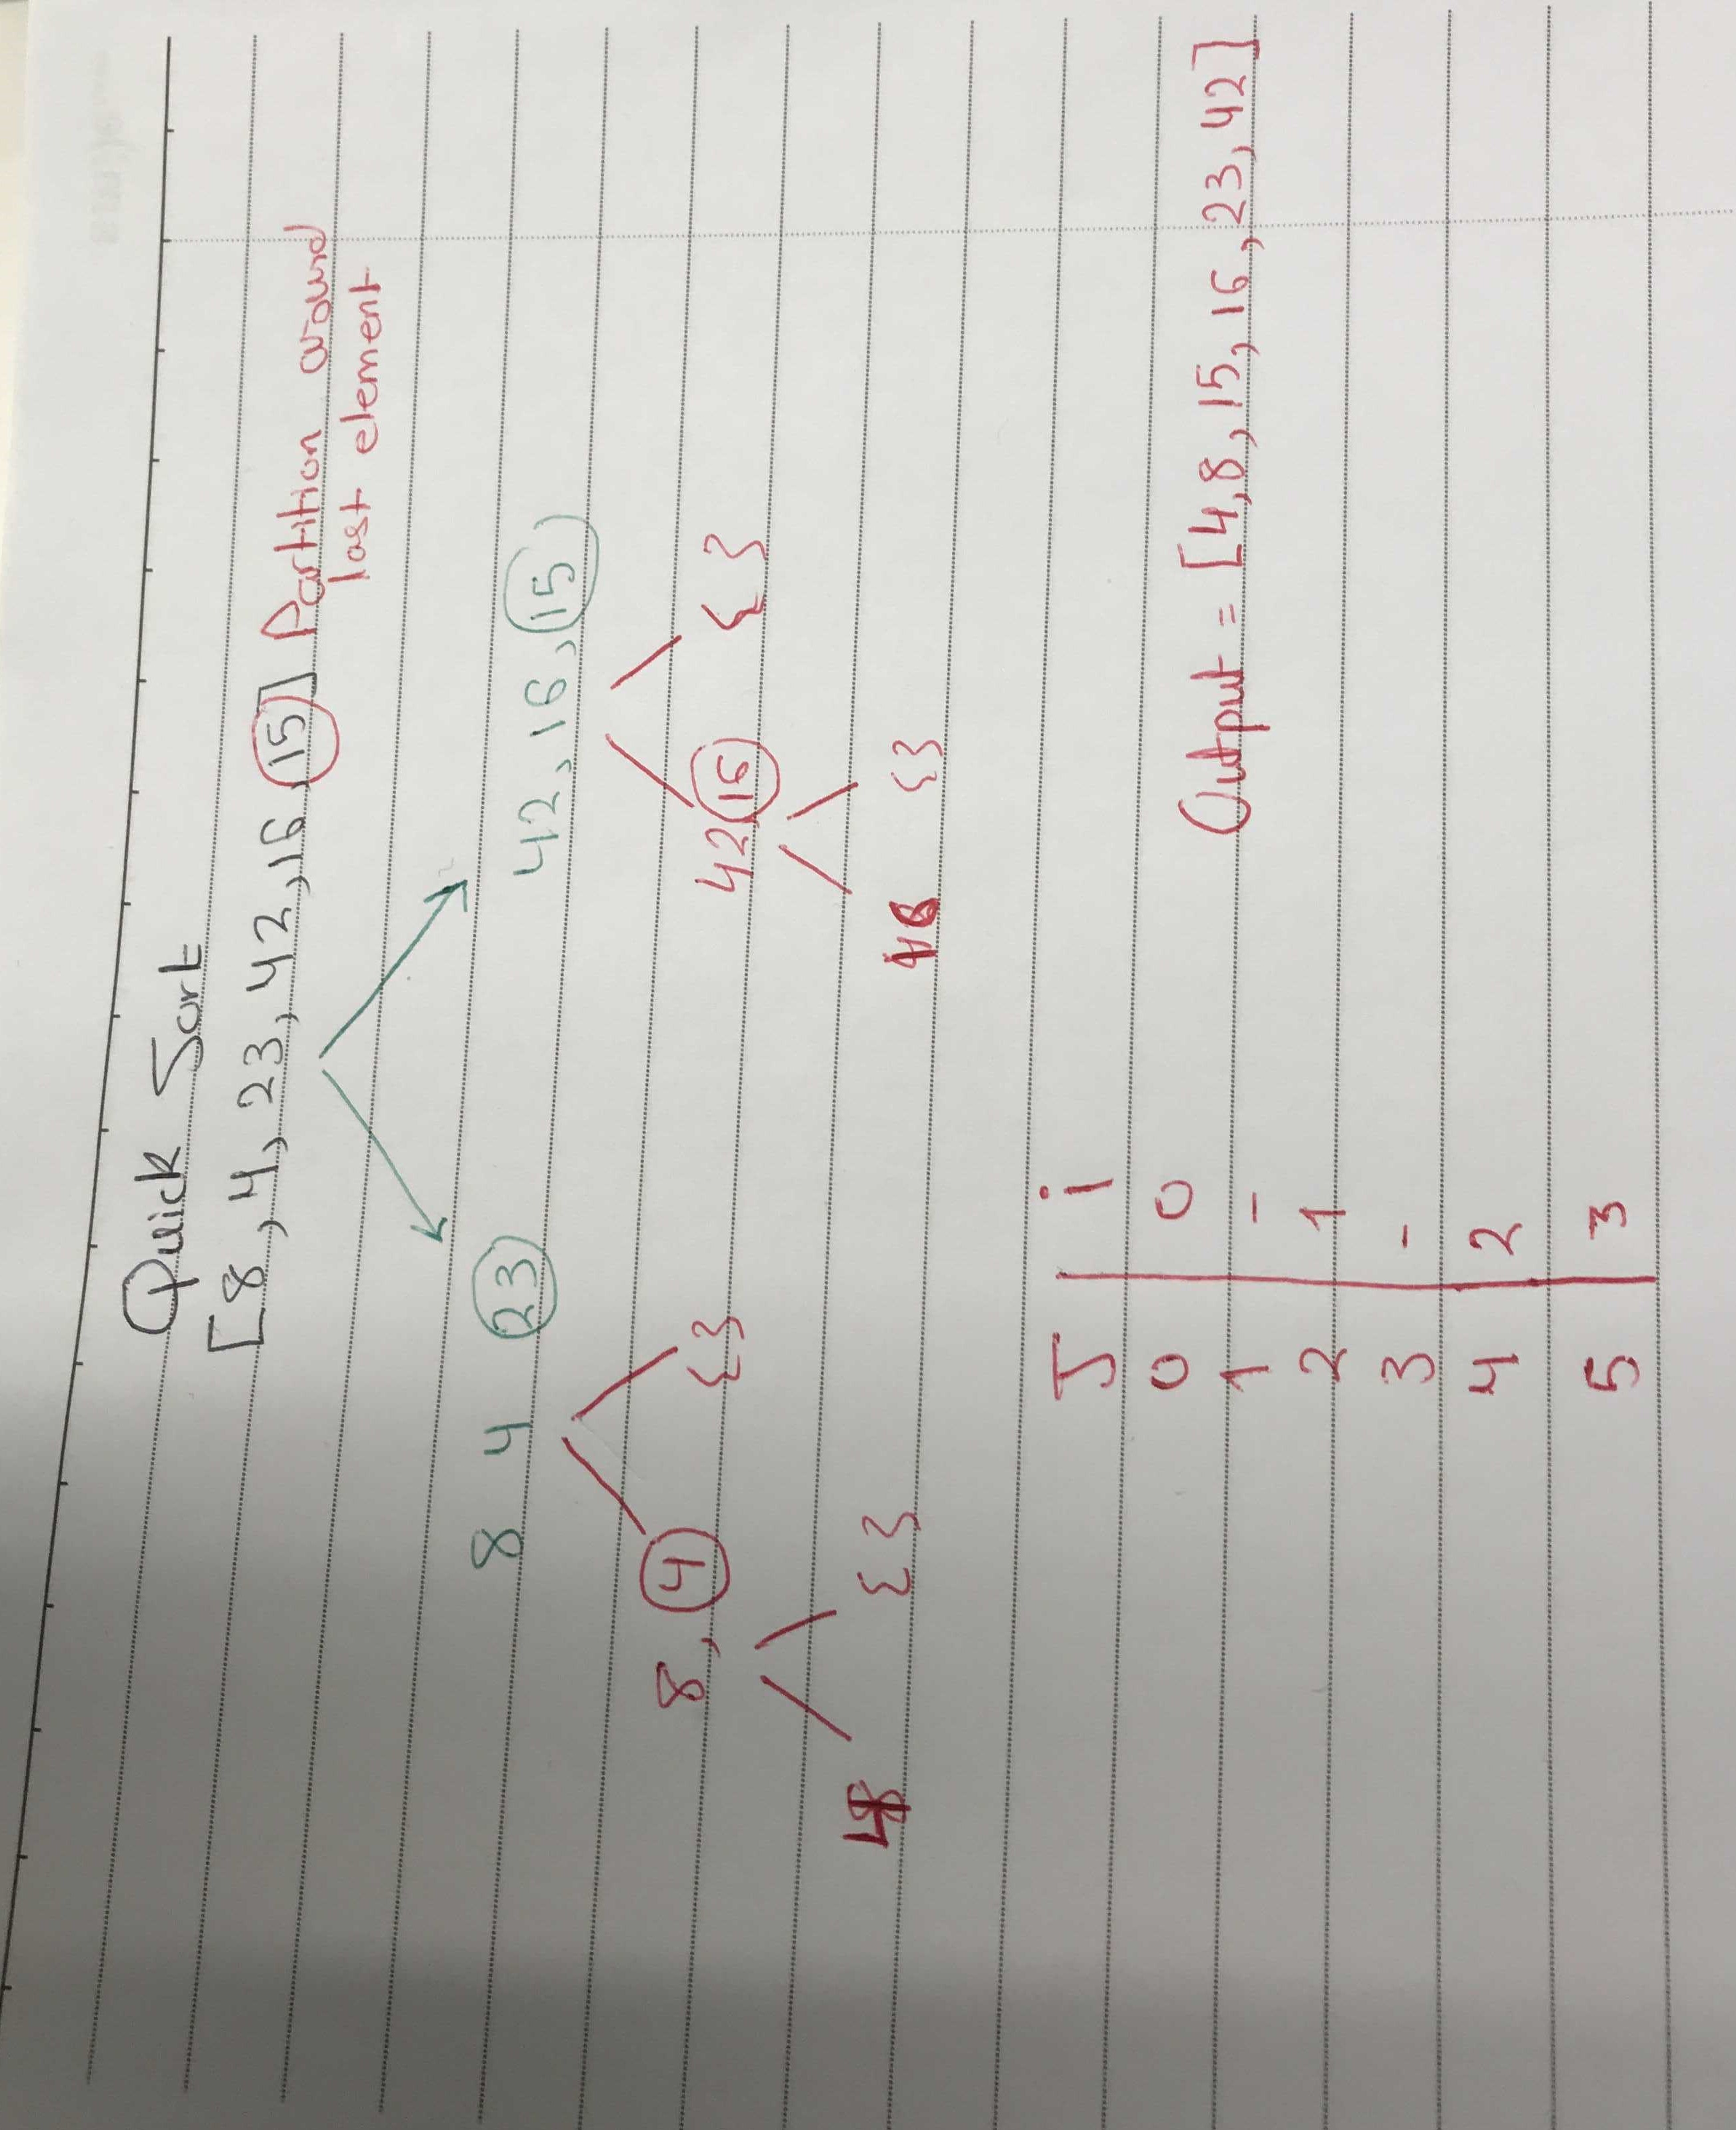 Quick Sort
[8,4,23,42,16,15] Partition around
last element
8 4 23
42,16,15
8,4 {}
42,16 {}
{}
{}
J i
0 0
1 -
2 1
3 -
4 2
5 3
Output = [4,8,15,16,23,42]